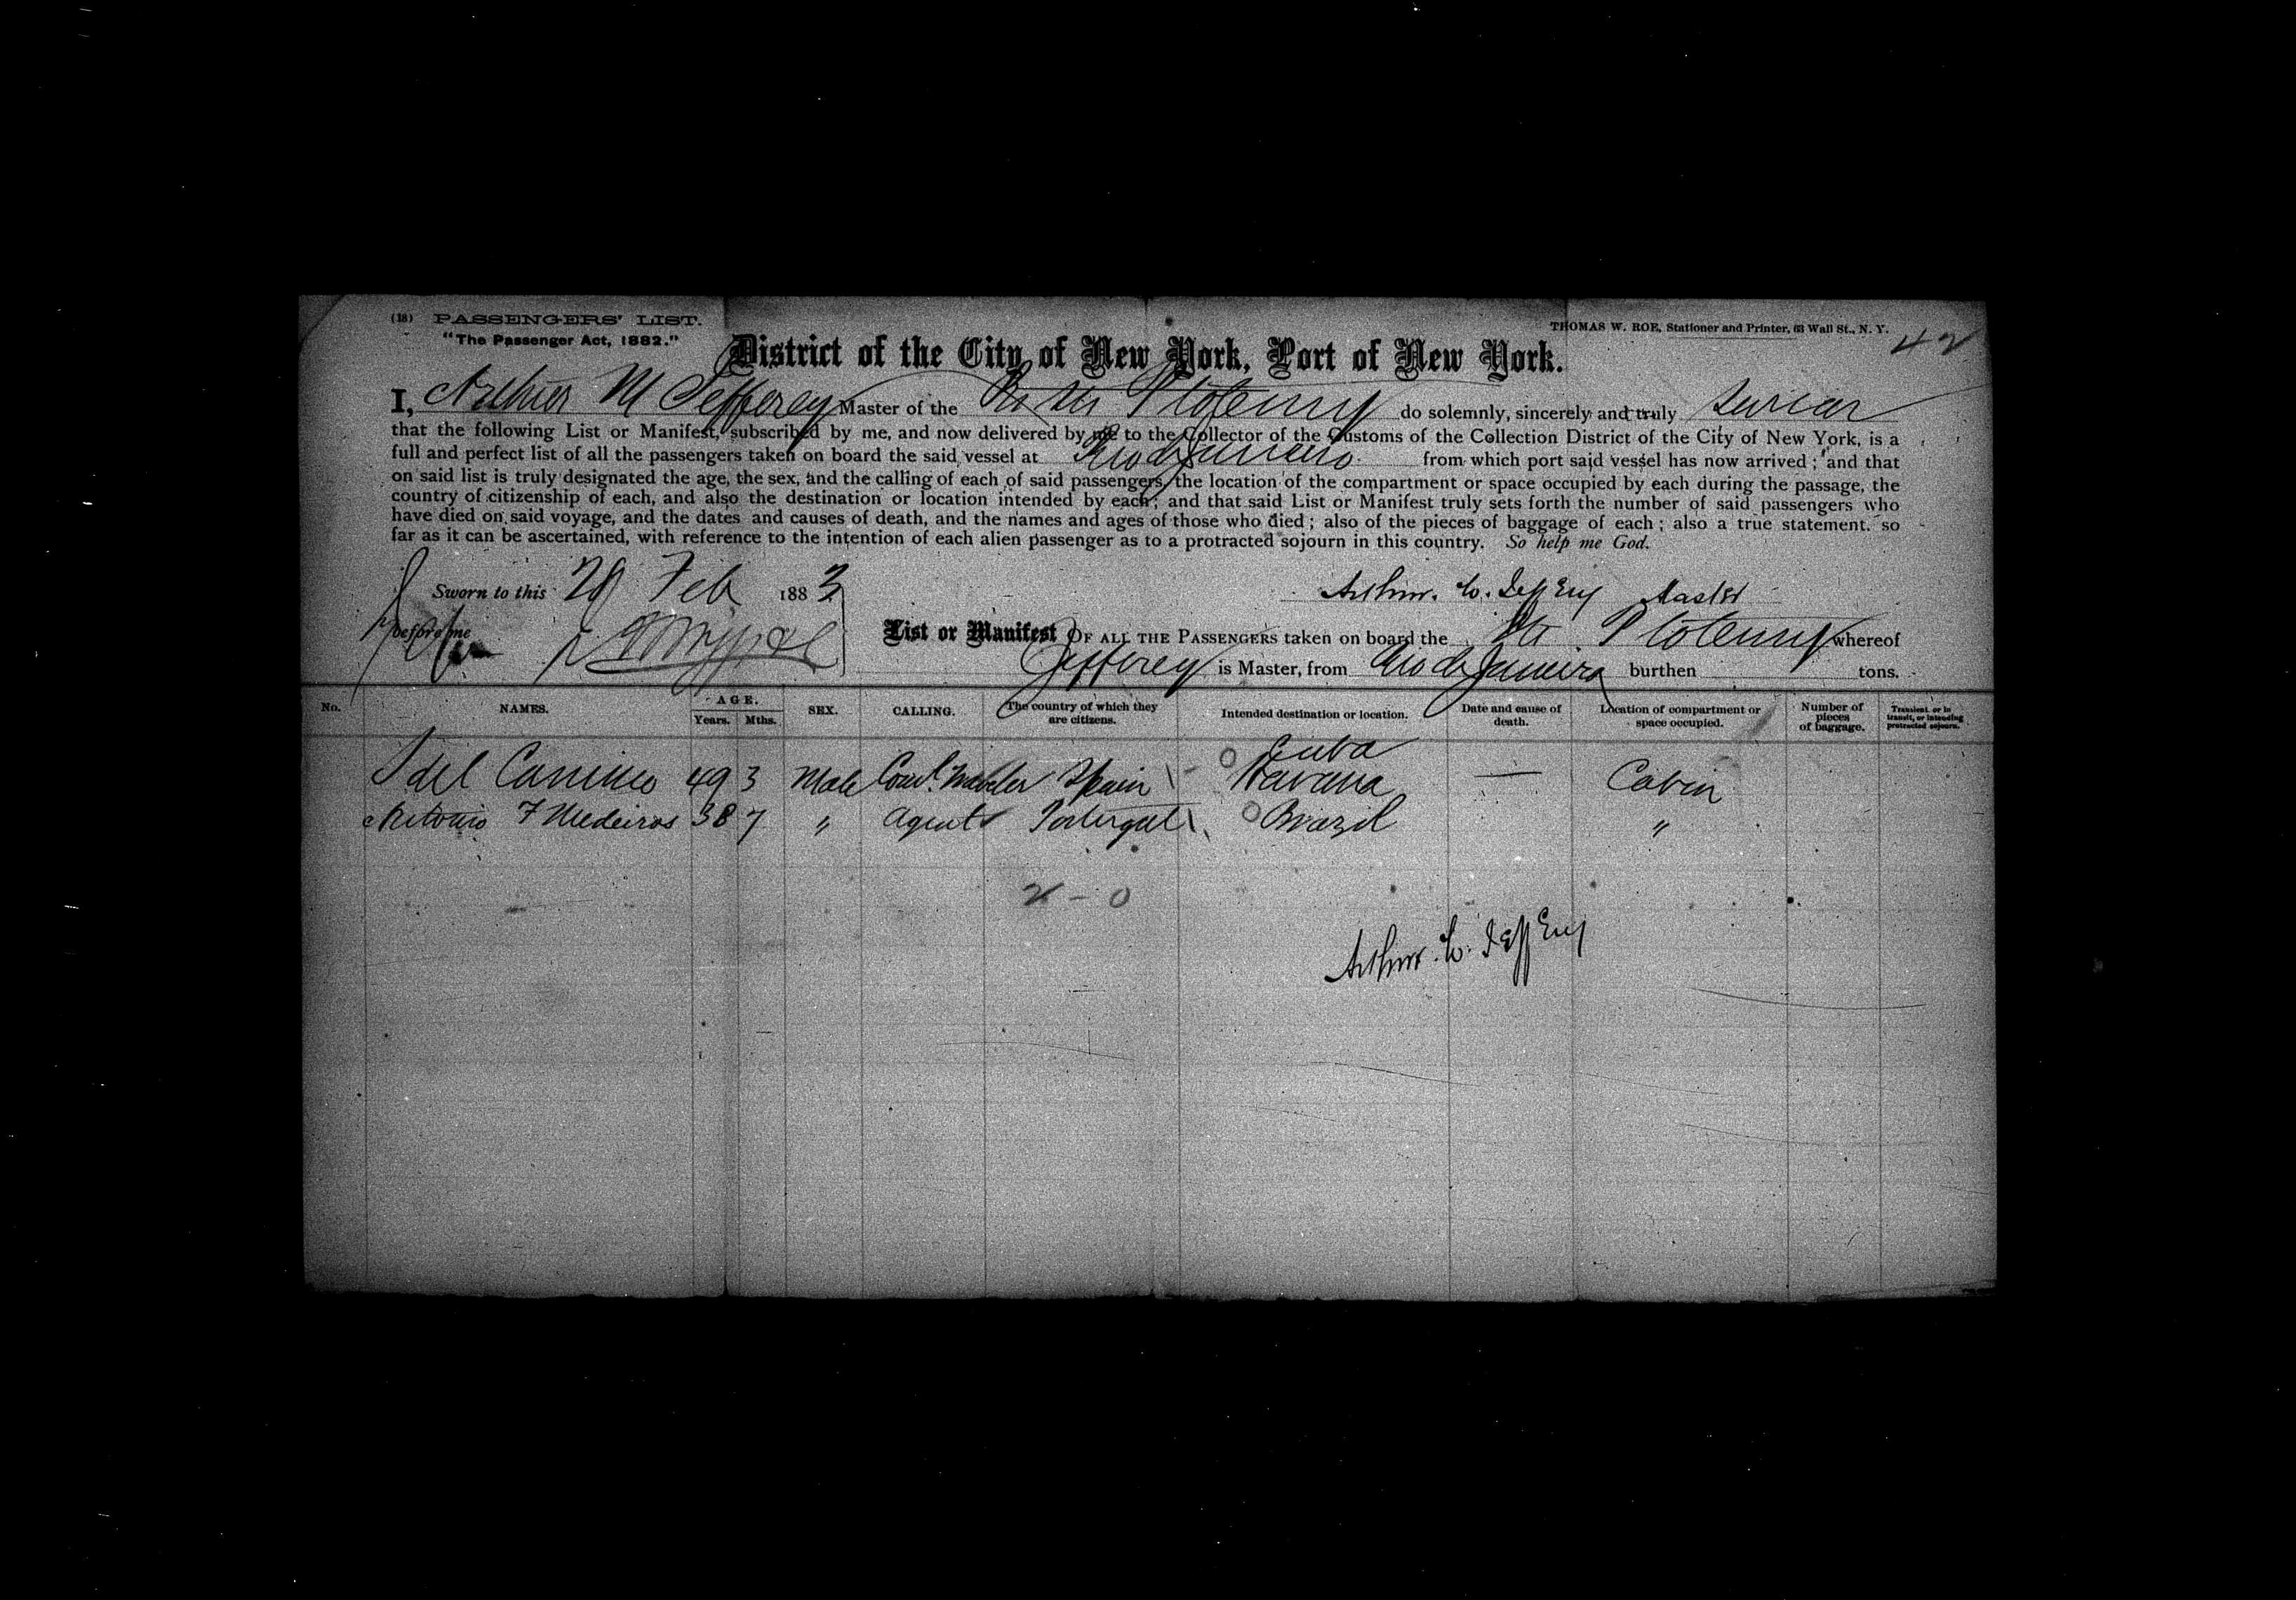 (18) PASSENGERS' LIST.
"The Passenger Act, 1882."
THOMAS W. ROE, Stationer and Printer, 63 Wall St., N. Y.
42
District of the City of New York, Port of New York.
I, Arthur M Jefferey Master of the Ptolemy do solemnly, sincerely and truly swear
that the following List or Manifest, subscribed by me, and now delivered by me to the Collector of the Customs of the Collection District of the City of New York, is a
full and perfect list of all the passengers taken on board the said vessel at Rio de Janeiro from which port said vessel has now arrived; and that
on said list is truly designated the age, the sex, and the calling of each of said passengers, the location of the compartment or space occupied by each during the passage, the
country of citizenship of each, and also the destination or location intended by each; and that said List or Manifest truly sets forth the number of said passengers who
have died on said voyage, and the dates and causes of death, and the names and ages of those who died; also of the pieces of baggage of each; also a true statement, so
far as it can be ascertained, with reference to the intention of each alien passenger as to a protracted sojourn in this country. So help me God.
Sworn to this Feb 1883
Arthur. W. Jeffery Master
before me
List or Manifest OF ALL THE PASSENGERS taken on board the Str Ptolemy whereof
Jefferey is Master, from Rio de Janeiro burthen tons.
No. NAMES. AGE. Years. Mths. SEX. CALLING. The country of which they are citizens. Intended destination or location. Date and cause of death. Location of compartment or space occupied. Number of pieces of baggage. Transient, or in transit, or intending protracted sojourn.
Cuba
J del Camino 49 3 Male Coml. Traveler Spain Havana — Cabin
Antonio F Medeiros 38 7 " Agent Portugal Brazil "
2 - 0
Arthur. W. Jeffery